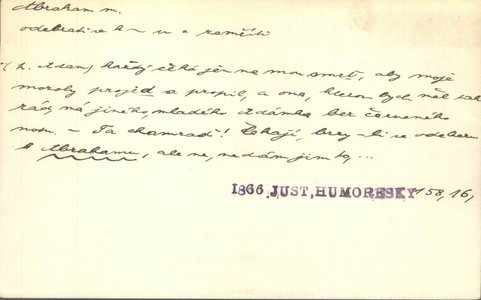 Abraham m.
odebrati se k ~ u = zemříti
(p. Adam) každý čeká jen na mou smrt, aby moje
moroly projed a propil, a ona, kterou bych měl tak
rád, má jiného, mladého Adámka bez červeného
nosu. – Ta chamraď! Čekají, brzy-li se odeberu
k Abrahamu, ale ne, nedám jim to, ...
1866 JUST, HUMORESKY 158, 16,